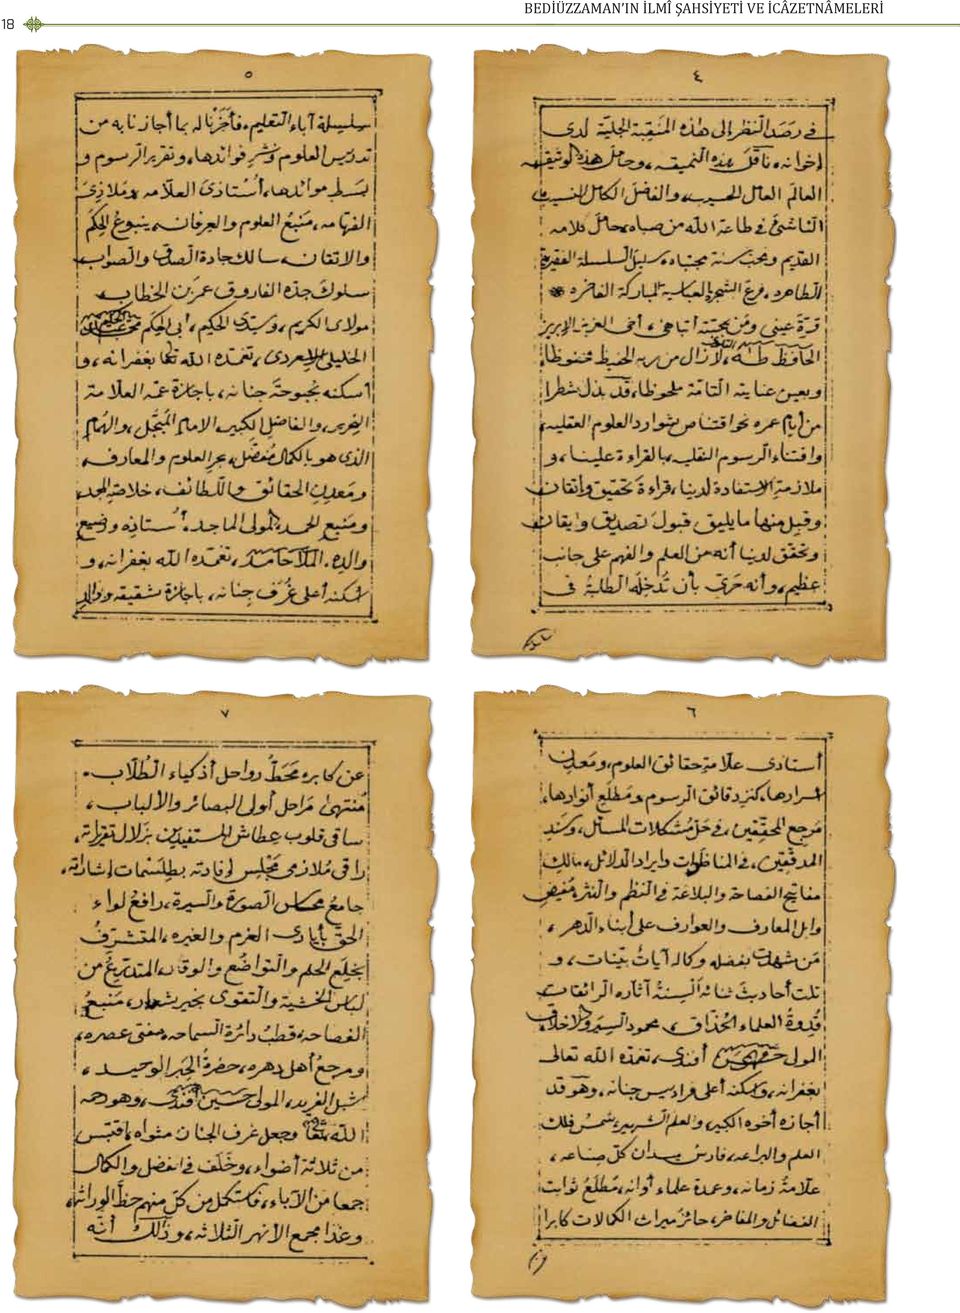 18
BEDİÜZZAMAN'IN İLMÎ ŞAHSİYETİ VE İCÂZETNÂMELERİ
٤
في رصد النظر إلى هذه المنقبة الجلية لدى
إخوانه، ناقل هذه النميقه، وحامل هذه الوثيقه
العالم العامل الحسيب، والفاضل الكامل النسيب
الناشئ في طاعة الله من صباه، حامل كلامه
القديم ومحب سنة مجتباه، سليل السلسلة الفقيرية
الطاهره، فرع الشجرة العباسية المباركة الفاخره
قرة عيني ومن بمحبته أتباهى، أخى العزيز الإبريز
الحافظ طه، لازال من ربه الحفيظ محفوظا،
وبعين عنايته التامة ملحوظا، قد بذل شطرا
من أيام عمره نحو اقتناص شوارد العلوم العقليه،
واقتناء الرسوم النقليه، بالقراءة علينا، و
ملازمة الإستفادة لدينا، قراءة تحقيق وإتقان
وقبل منها ما يليق قبول تصديق وإيقان
وتحقق لدينا أنه من العلم والفهم على جانب
عظيم، وأنه حرى بأن ندخله الطلبة في
٥
سلسلة آباء التعليم، فأجزنا له بما أجازنا به من
تدريس العلوم ونشر فوائدها، وتقرير الرسوم و
بسط موائدها، أستاذى العلامه وملاذى
الفهامه، منبع العلوم والعرفان، ينبوع الحكم
والاتقان، سالك جادة الصدق والصواب،
سلوك جده الفاروق عمر بن الخطاب،
مولاى الكريم، وسيدى الحكيم، أبى الحكم
الخليلى الإسعردى، تغمده الله تعالى بغفرانه، و
أسكنه بحبوحة جنانه، باجازة عمه العلامة
النحرير، والفاضل الكبير، الامام المبجل، والهمام
الذى هو بالكمال مفضل، بحر العلوم والمعارف،
ومعدن الحقائق واللطائف، خلاصة المجد،
ومنبع الحمد، المولى الماجد. أستاذه وضجيع
والده. الملا حامد، تغمده الله بغفرانه، و
أسكنه أعلى غرف جنانه، باجازة شقيقه ووالد
٦
أستاذى علامة حقائق العلوم، ومعدن
أسرارها، كنز دقائق الرسوم ومطلع أنوارها،
مرجع المحققين، في حل مشكلات المسائل، وسند
المدققين، في المناظرات وايراد الدلائل، مالك
مفاتيح الفصاحة والبلاغة في النظم والنثر، مفيض
وابل المعارف والعوارف على أبناء الدهر،
من شهدت بفضله وكماله آيات بينات، و
تلت أحاديث ثنائه ألسنة آثاره الرائقات
قدوة العلماء الحذاق، محمود السير والاخلاق
المولى أفندى، تغمده الله تعالى
بغفرانه، وأسكنه أعلى فراديس جنانه، وهو قد
أجازه أخوه الكبير، والعلم الشهير، شمس فلك
العلم والبراعه، فارس ميدان كل صناعه،
علامة زمانه، وعمدة علماء أوانه، مطلع ثوابت
الفضائل والمفاخر، حائز ميراث الكمالات كابرا
٧
عن كابر، محط رواحل أذكياء الطلاب،
منتهى مراحل أولى البصائر والألباب،
ساقى قلوب عطاش المستفيدين بزلال تقريراته،
راقى ملازمى مجلس إفادته بطلسمات إشاراته،
جامع محاسن الصورة والسيرة، رافع لواء
الحق بأيادى العزم والغيره، المتشرف
بخلع الحلم والتواضع والوقار، المتدرع من
لباس الخشية والتقوى بخير شعار، منبع
الفصاحه، قطب دائرة السماحه، مفتى عصره،
ومرجع أهل دهره، حضرة الحبر الوحيد،
شبل الفريد، المولى حسين أفندى، وهو رحمه
الله تعالى وجعل غرف الجنان مثواه، اقتبس
من ثلاثة أضواء، وخلف في الفضل والكمال
جمعا من الآباء، فاستكمل من كل منهم حظ الوراثه،
وغدا مجمع الأنهر الثلاثه، وذلك أنه